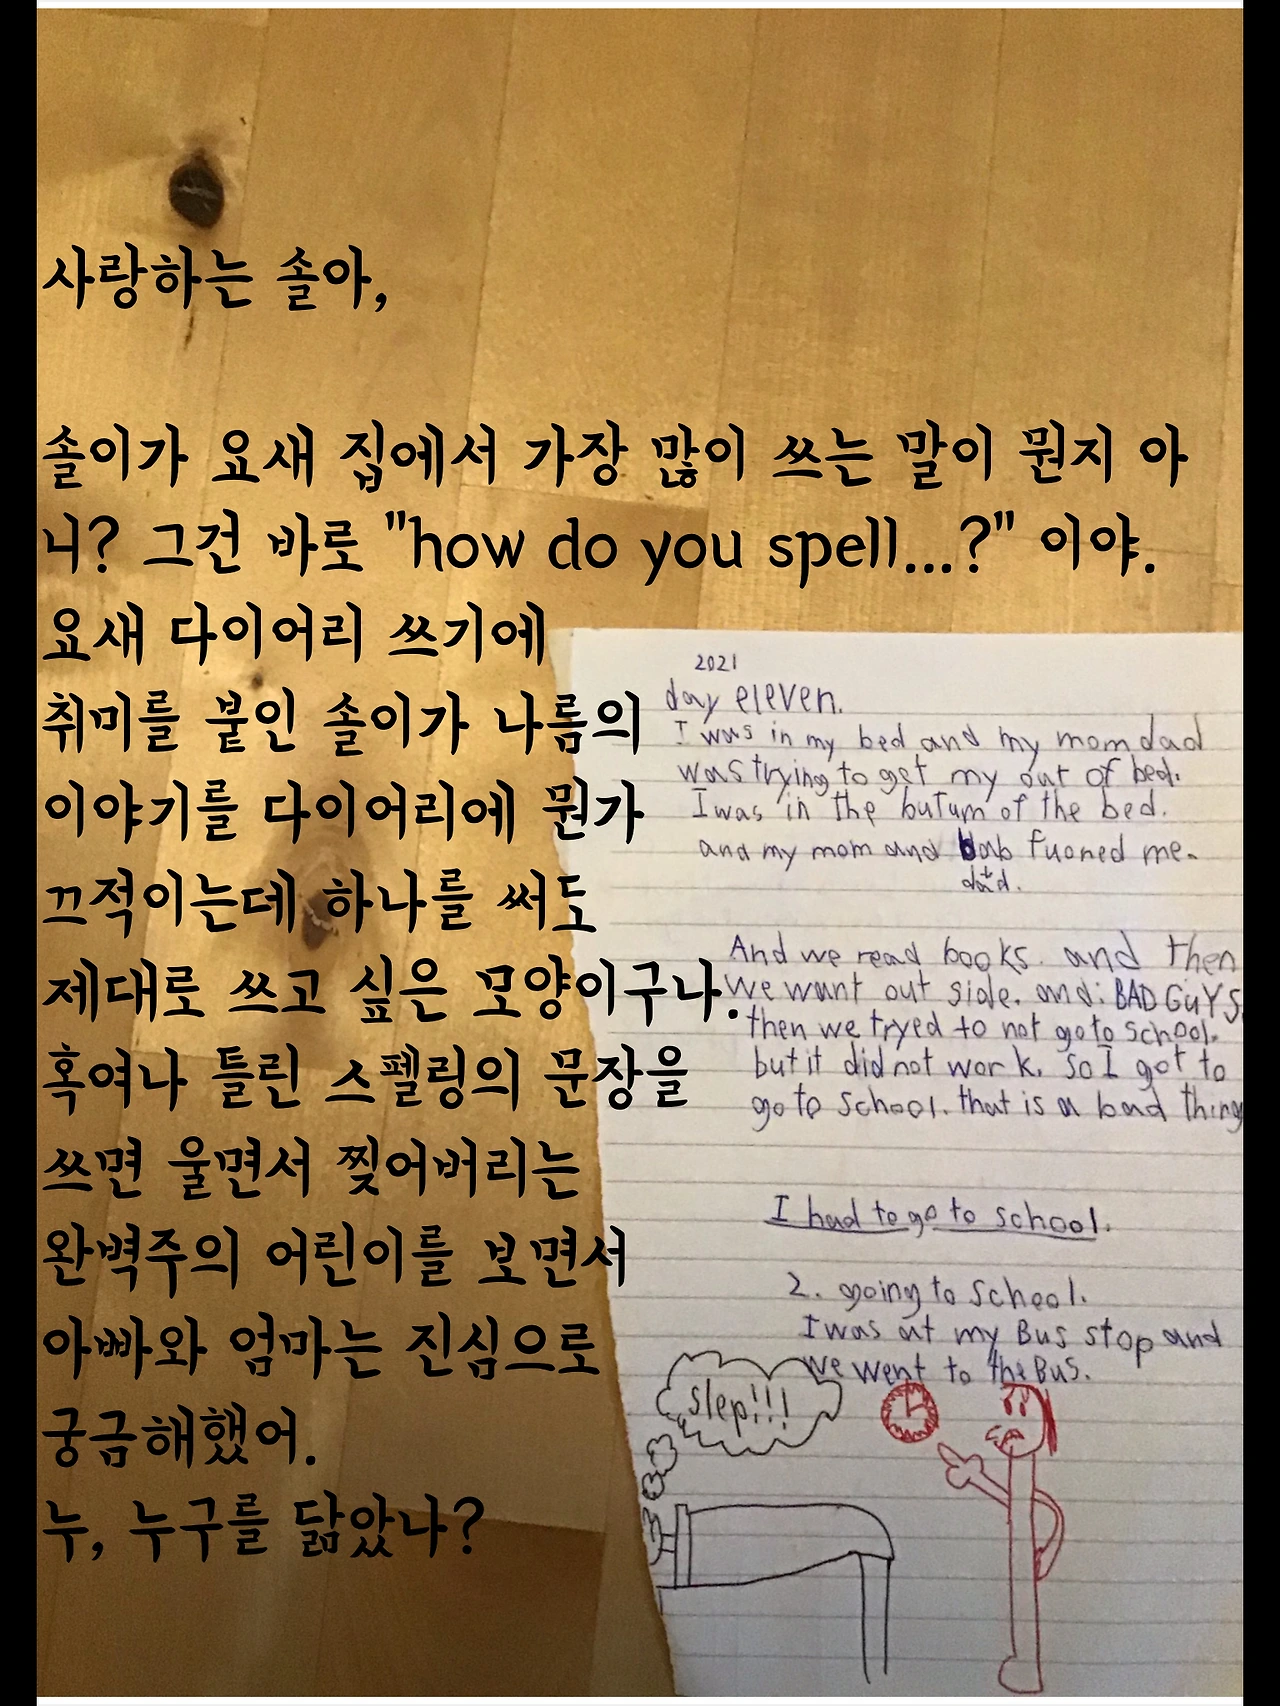 사랑하는 솔아,
솔이가 요새 집에서 가장 많이 쓰는 말이 뭔지 아
니? 그건 바로 "how do you spell...?" 이야.
요새 다이어리 쓰기에
취미를 붙인 솔이가 나름의
이야기를 다이어리에 뭔가
끄적이는데 하나를 써도
제대로 쓰고 싶은 모양이구나.
혹여나 틀린 스펠링의 문장을
쓰면 울면서 찢어버리는
완벽주의 어린이를 보면서
아빠와 엄마는 진심으로
궁금해했어.
누, 누구를 닮았나?
2021
day eleven.
I was in my bed and my mom dad
was trying to get my out of bed.
I was in the butum of the bed.
and my mom and bab fuoned me.
dad.
And we read books. and then
we want out side. and: BAD GUYS
then we tryed to not go to school.
but it did not work. so I got to
go to school. that is a bad thing
I had to go to school.
2. going to school.
I was at my Bus stop and
we went to the Bus.
slep!!!